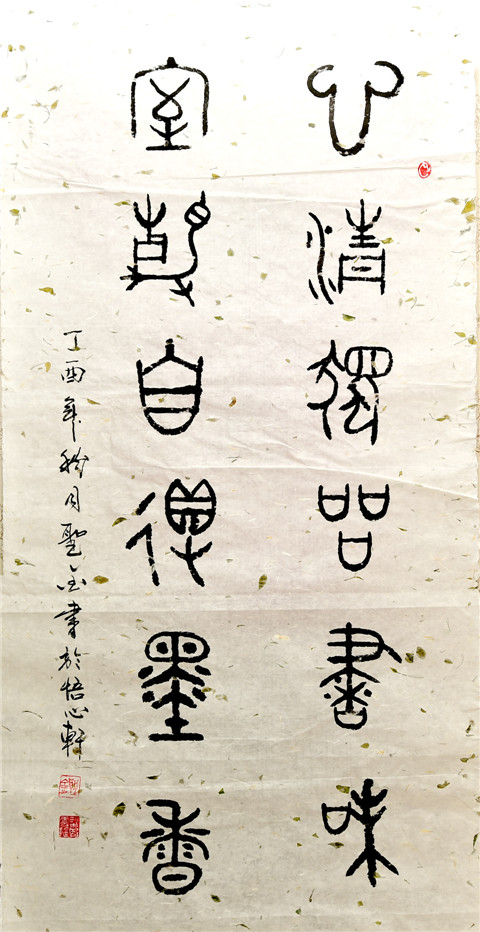 心清獨品書味
室自得墨香
丁酉年秋月聖金書於悟心軒